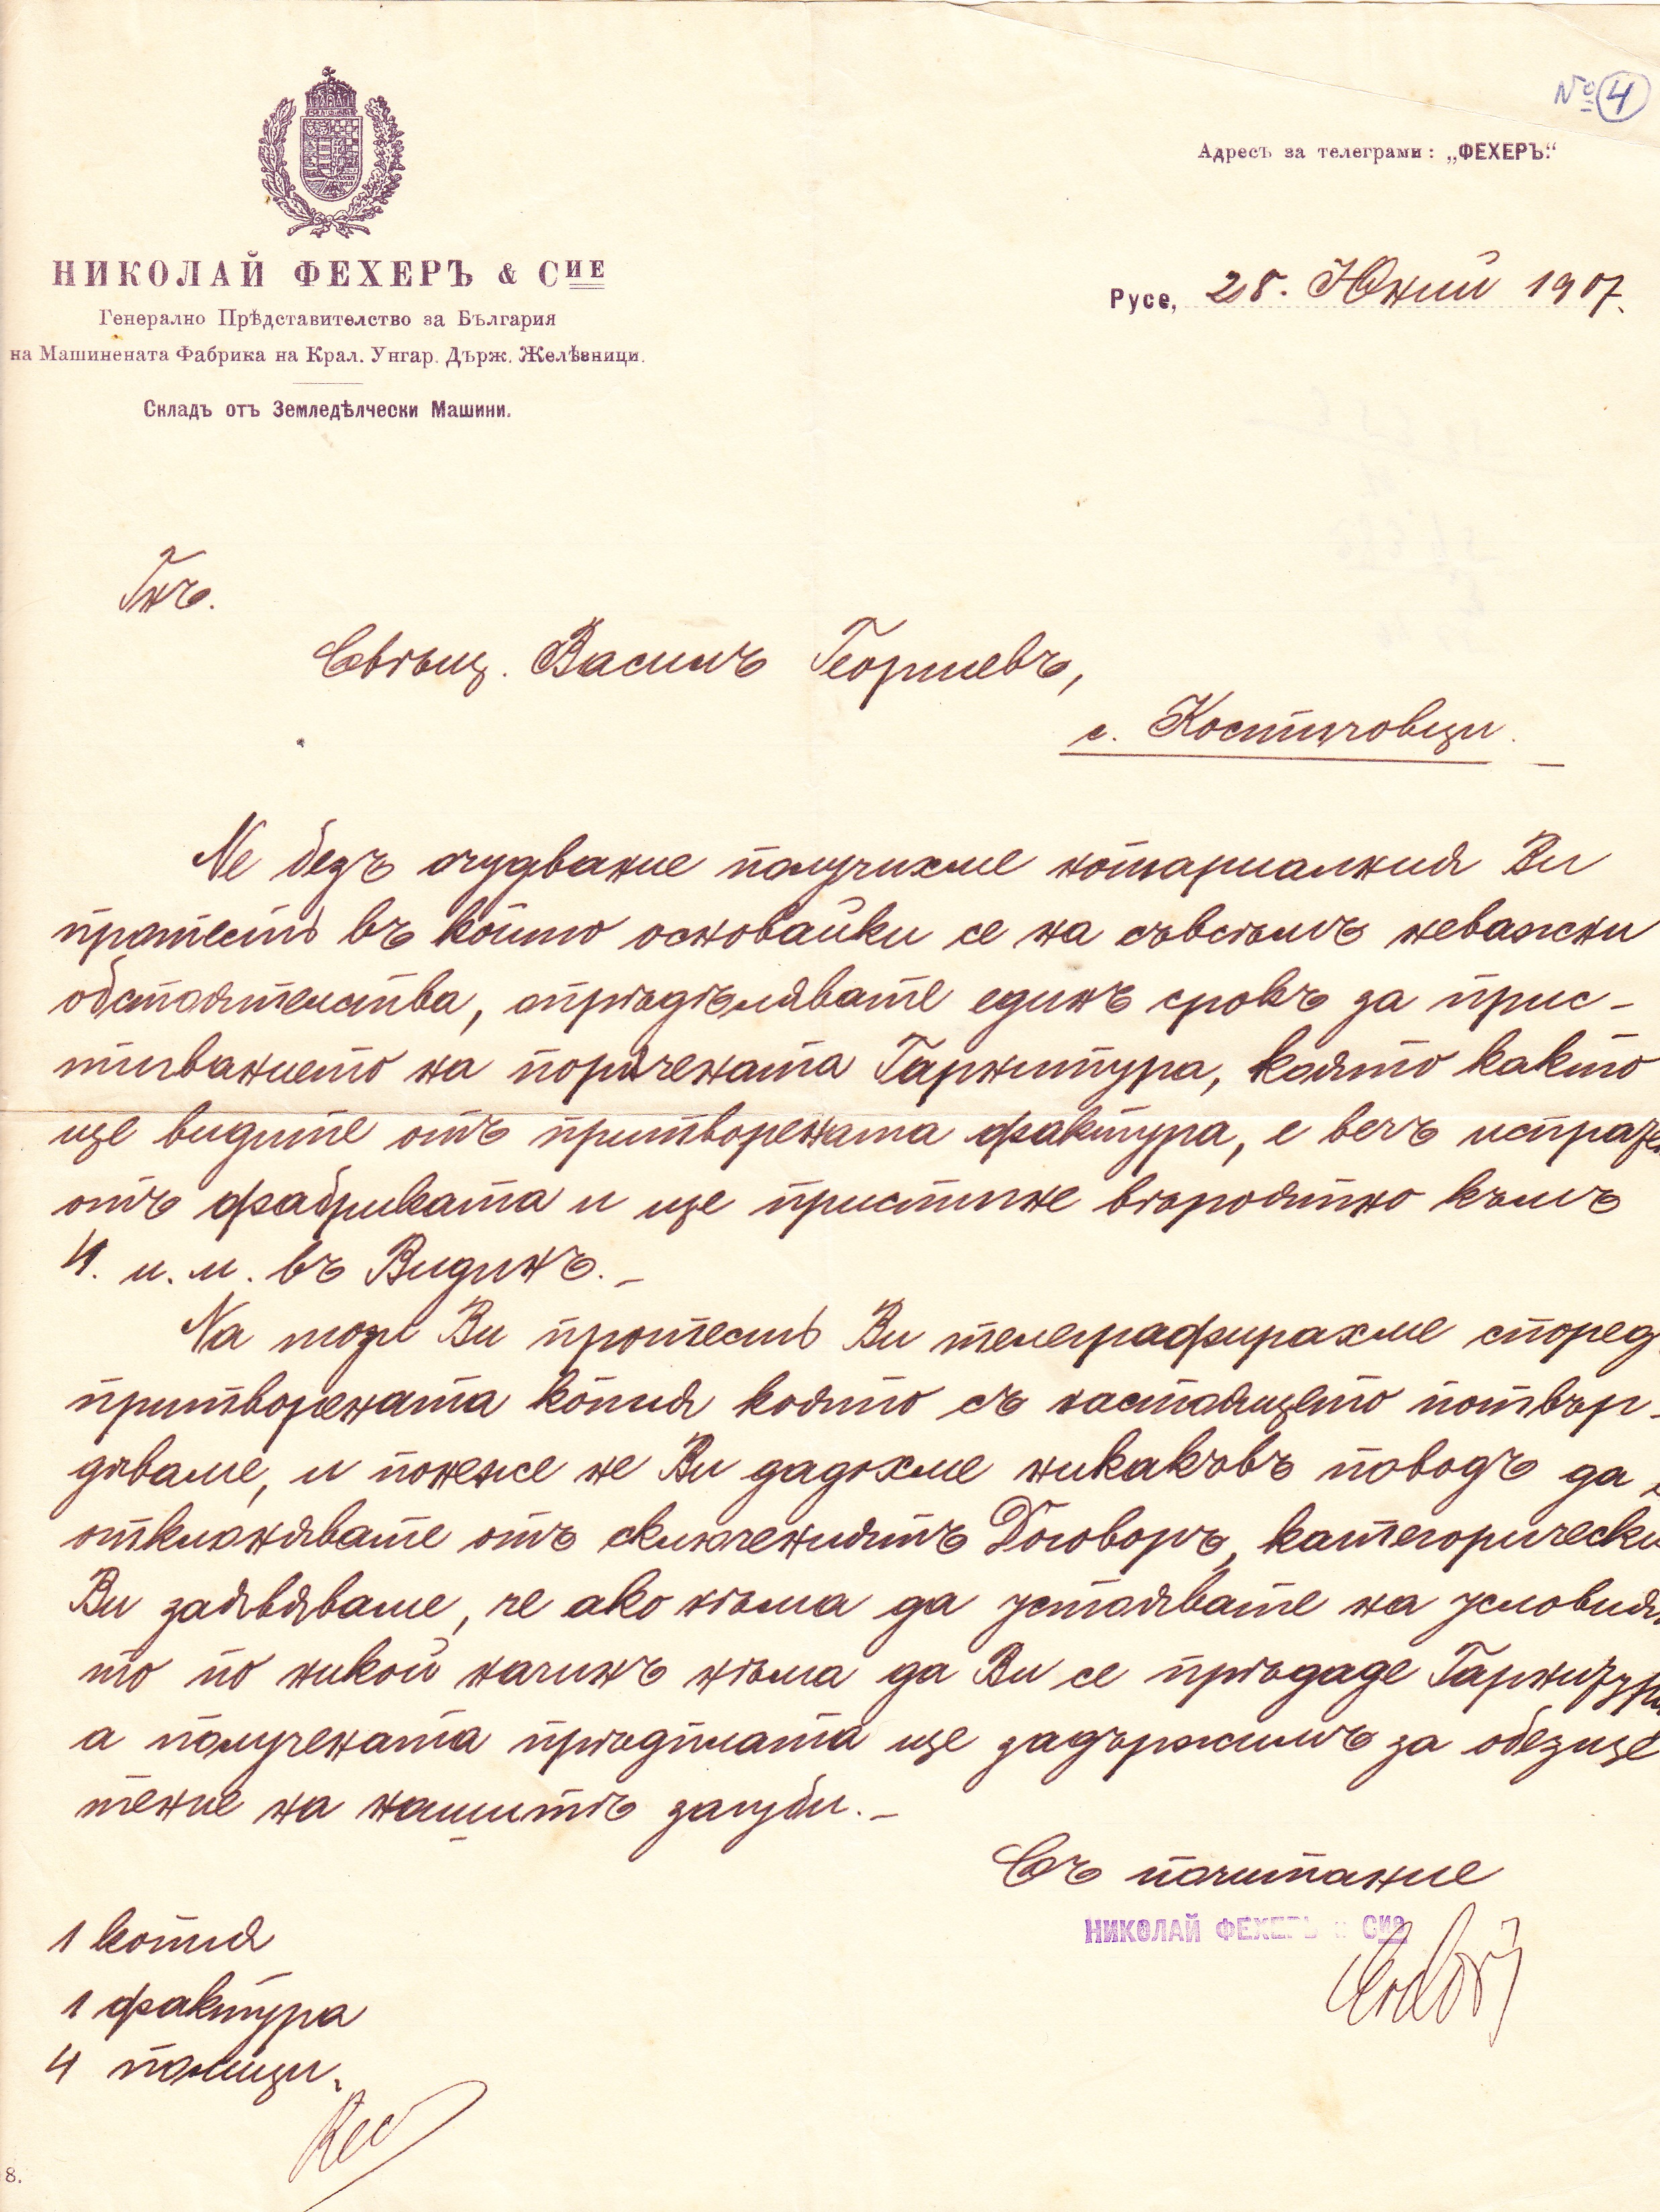 № 4
Адресъ за телеграми: „ФЕХЕРЪ.“
НИКОЛАЙ ФЕХЕРЪ & СИЕ
Генерално Прѣдставителство за България
на Машинената Фабрика на Крал. Унгар. Държ. Желѣзници.
Складъ отъ Земледѣлчески Машини.
Русе, 28. Юний 1907.
Гнъ.
Свѣщ. Василъ Георгиевъ,
с. Костичовци.
Не безъ очудвание получихме нотариалния Ви
протестъ въ който основайки се на съвсѣмъ неважни
обстоятелства, опрѣдѣлявате единъ срокъ за прис-
тиганието на поръчената Гарнитура, която както
ще видите отъ притворената фактура, е вечъ испразе
отъ фабриката и ще пристигне вѣроятно къмъ
4. и. м. въ Видинъ. –
На този Ви протестъ Ви телеграфирахме според
притворената копия която съ настоящето потвър-
дяваме, и понеже не Ви дадохме никакъвъ поводъ да
отклонявате отъ сключениятъ Договоръ, категорически
Ви заявяваме, че ако нѣма да устоявате на условия
то по никой начинъ нѣма да Ви се прѣдаде Гарнитура
а получената прѣдплата ще задържимъ за обезще
тение на нашитѣ загуби. –
Съ почитание
НИКОЛАЙ ФЕХЕРЪ & Сие
1 копия
1 фактура
4 полици.
8.